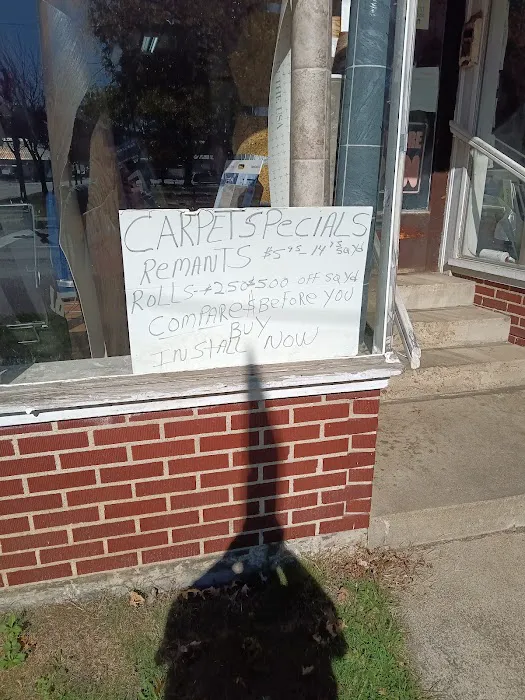 CARPET SPECIALS
REMANTS $5.95 - 14.95 SQ Yd
ROLLS - $2.50 $5.00 off SQ Yd
COMPARE & BEFORE YOU
BUY
INSTALL NOW